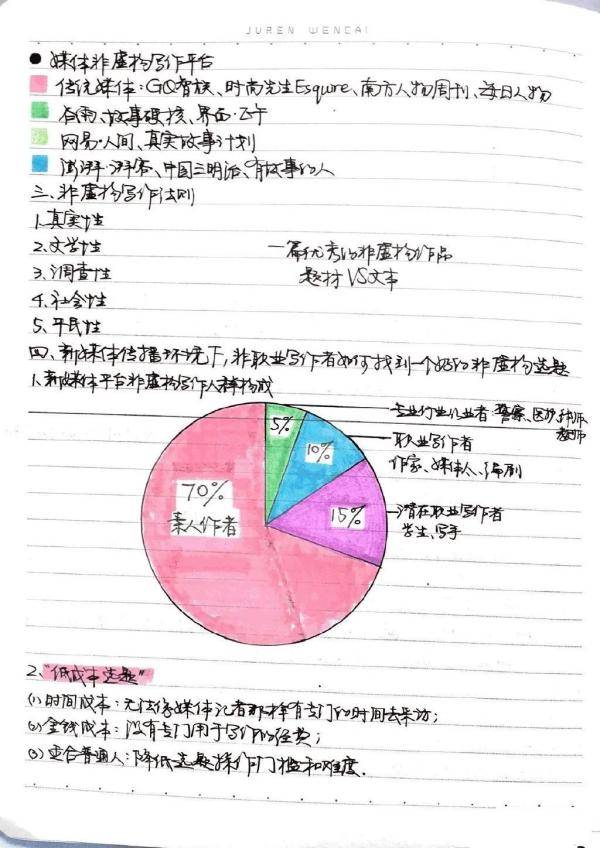 JUREN WENCAI
● 媒体非虚构写作平台
传统媒体：GQ智族、时尚先生Esquire、南方人物周刊、每日人物
谷雨、故事硬核、界面·正午
网易·人间、真实故事计划
澎湃·湃客、中国三明治、有故事的人
三、非虚构写作法则
1.真实性
2.文学性
3.调查性
4.社会性
5.平民性
一篇优秀的非虚构作品
题材 VS 文本
四、新媒体传播环境下，非职业写作者如何找到一个好的非虚构选题
1.新媒体平台非虚构写作人群构成
5%
专业行业从业者：警察、医护、律师、教师
10%
职业写作者
作家、媒体人、编剧
15%
潜在职业写作者
学生、写手
70%
素人作者
2.“低成本选题”
(1)时间成本：无法像媒体记者那样有专门的时间去采访；
(2)金钱成本：没有专门用于写作的经费；
(3)适合普通人：降低选题操作门槛和难度.